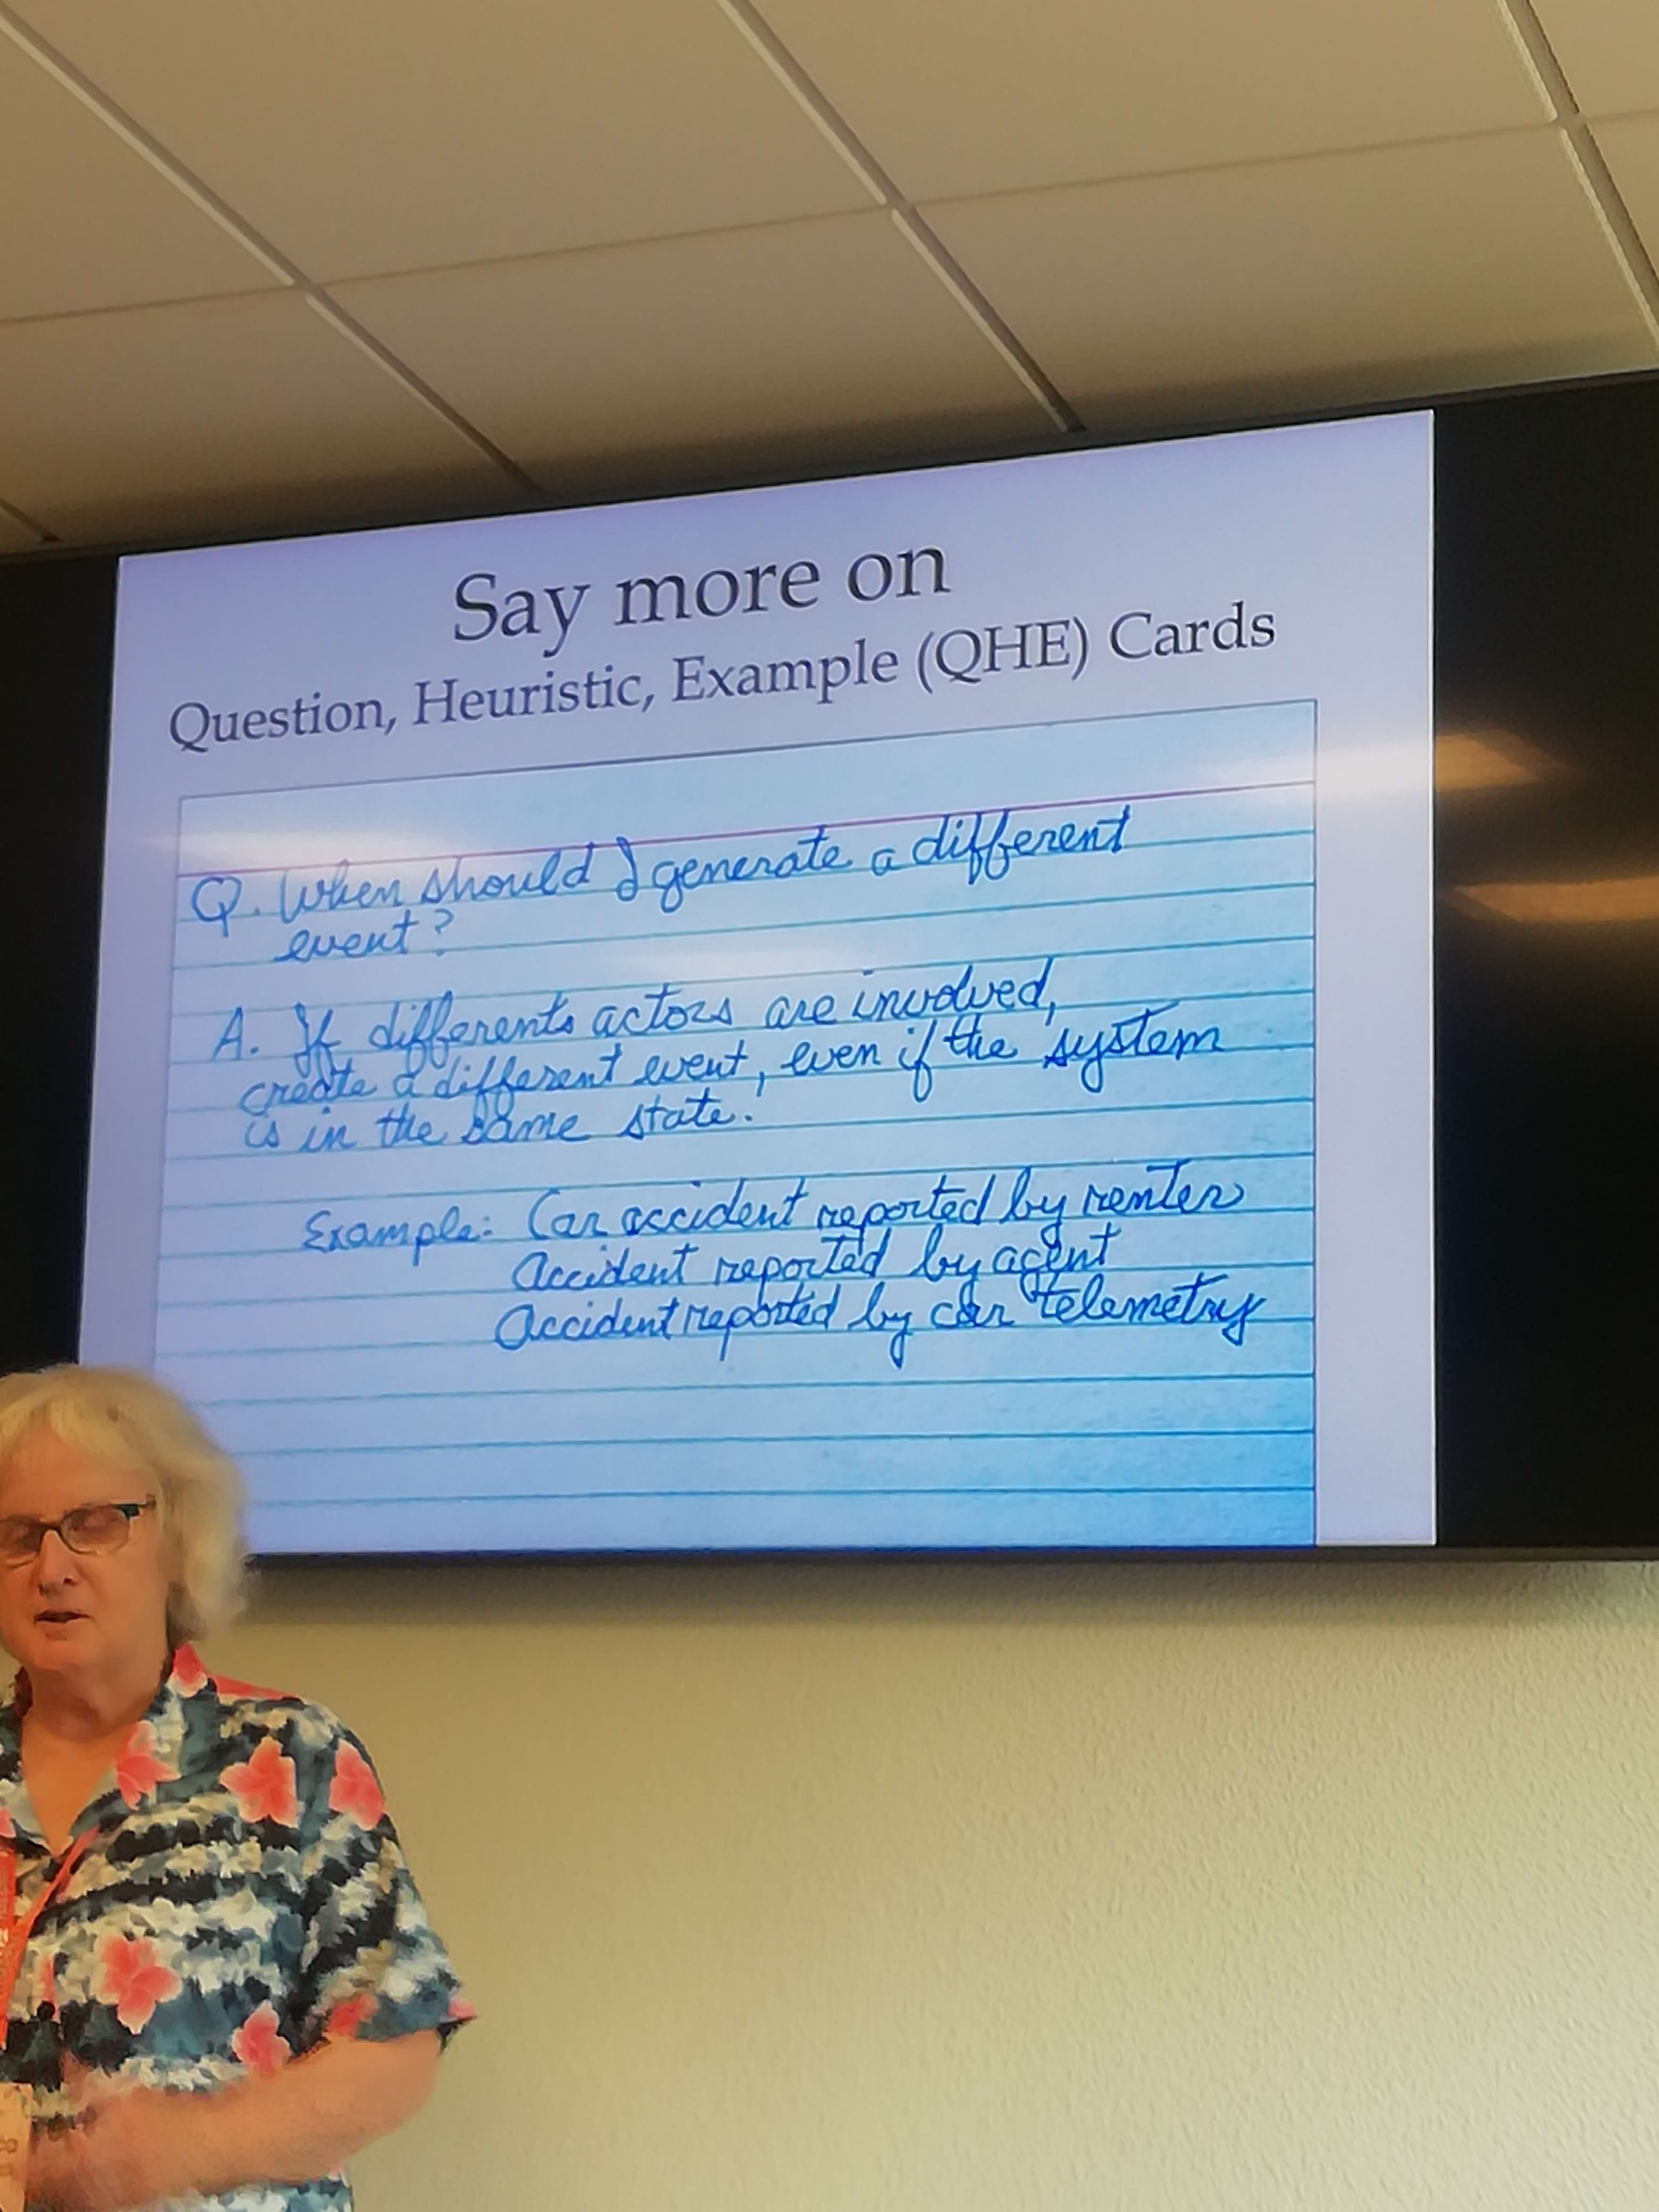 Say more on
Question, Heuristic, Example (QHE) Cards
Q. When should I generate a different
event?
A. If differents actors are involved,
create a different event, even if the system
is in the same state.
Example: Car accident reported by renter
Accident reported by agent
Accident reported by car telemetry